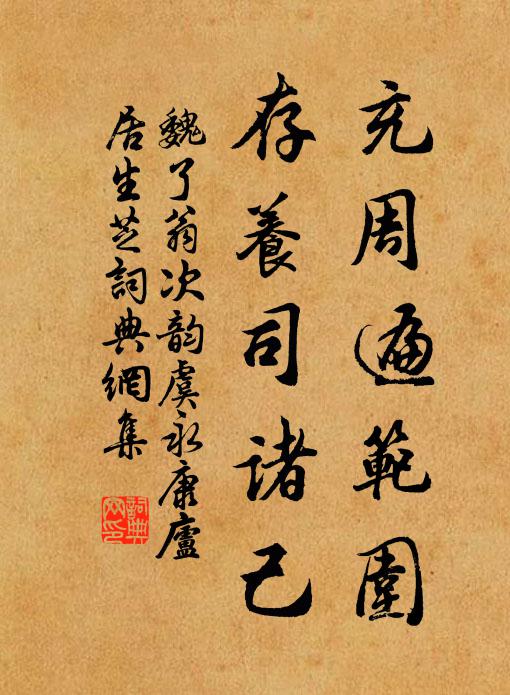 充周遍範圍
存養司諸己
魏了翁次韵虞永康廬
居生芝詞典網集
詞典
网印